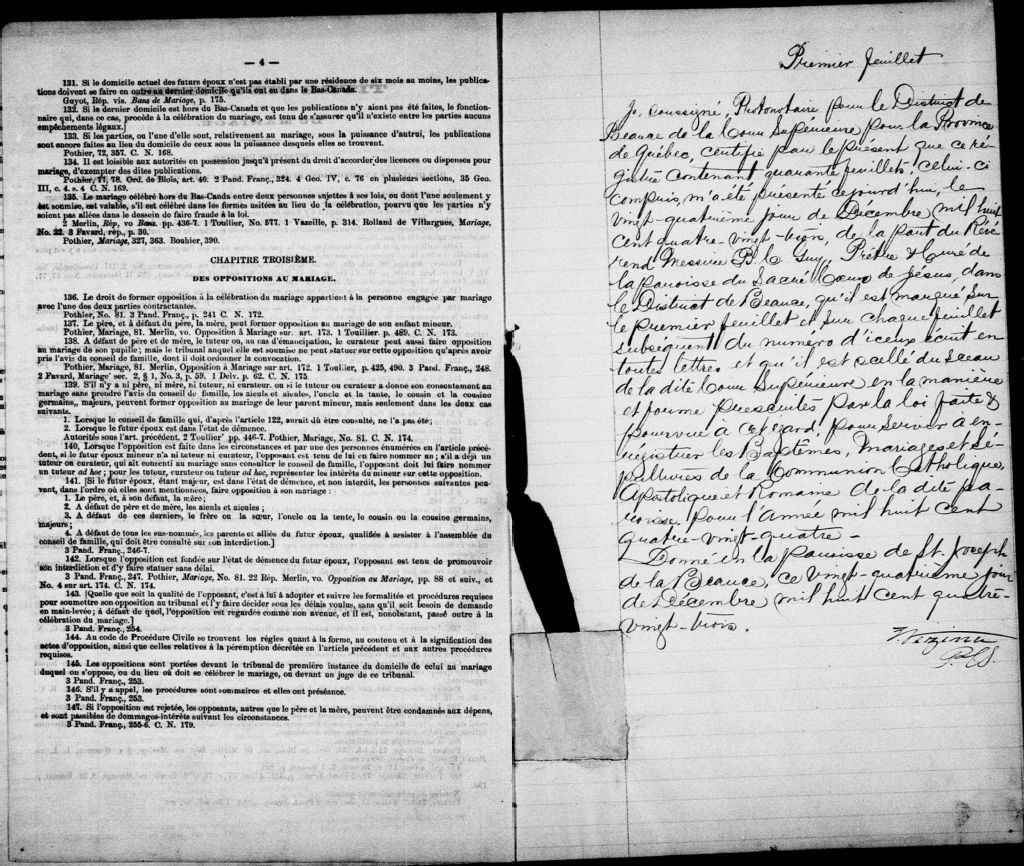 — 4 —
131. Si le domicile actuel des futurs époux n'est pas établi par une résidence de six mois au moins, les publica-
tions doivent se faire en outre au dernier domicile qu'ils ont eu dans le Bas-Canada.
Guyot, Rép. vis. Bans de Mariage, p. 175.
132. Si le dernier domicile est hors du Bas-Canada et que les publications n'y aient pas été faites, le fonction-
naire qui, dans ce cas, procède à la célébration du mariage, est tenu de s'assurer qu'il n'existe entre les parties aucuns
empêchements légaux.]
133. Si les parties, ou l'une d'elle sont, relativement au mariage, sous la puissance d'autrui, les publications
sont encore faites au lieu du domicile de ceux sous la puissance desquels elles se trouvent.
Pothier, 72, 357. C. N. 168.
134. Il est loisible aux autorités en possession jusqu'à présent du droit d'accorder des licences ou dispenses pour
mariage, d'exempter des dites publications.
Pothier, 77, 78. Ord. de Blois, art. 40. 2 Pand. Franç., 324. 4 Geo. IV, c. 76 en plusieurs sections, 35 Geo.
III, c. 4. s. 4 C. N. 169.
135. Le mariage célébré hors du Bas-Canda entre deux personnes sujettes à ses lois, ou dont l'une seulement y
est soumise, est valable, s'il est célébré dans les formes usitées au lieu de la célébration, pourvu que les parties n'y
soient pas allées dans le dessein de faire fraude à la loi.
2 Merlin, Rép, vo Bans. pp. 436-7. 1 Toullier, No. 577. 1 Vazeille, p. 314. Rolland de Villargues, Mariage,
No. 22. 3 Favard, rép., p. 30.
Pothier, Mariage, 327, 363. Bouhier, 390.
CHAPITRE TROISIÈME.
DES OPPOSITIONS AU MARIAGE.
136. Le droit de former opposition à la célébration du mariage appartient à la personne engagée par mariage
avec l'une des deux parties contractantes.
Pothier, No. 81. 3 Pand. Franç., p. 241 C. N. 172.
137. Le père, et à défaut du père, la mère, peut former opposition au mariage de son enfant mineur.
Pothier, Mariage, 81. Merlin, vo. Opposition à Mariage sur. art. 173. 1 Touillier. p. 489. C. N. 173.
138. A défaut de père et de mère, le tuteur ou, au cas d'émancipation, le curateur peut aussi faire opposition
au mariage de son pupille; mais le tribunal auquel elle est soumise ne peut statuer sur cette opposition qu'après avoir
pris l'avis du conseil de famille, dont il doit ordonner la convocation.
Pothier, Mariage, 81. Merlin, Opposition à Mariage sur art. 172. 1 Toullier, p. 425, 490. 3 Pand. Franç., 248.
2 Favard, Mariage' sec. 2, § 1, No. 3, p. 59. 1 Delv. p. 62. C. N. 175.
139. S'il n'y a ni père, ni mère, ni tuteur, ni curateur. ou si le tuteur ou curateur a donne son consentement au
mariage sans prendre l'avis du conseil de famille, les aieuls et aieules, l'oncle et la tante, le cousin et la cousine
germains,, majeurs, peuvent former opposition au mariage de leur parent mineur, mais seulement dans les deux cas
suivants.
1. Lorsque le conseil de famille qui, d'après l'article 122, aurait dû être consulté, ne l'a pas été;
2. Lorsque le futur époux est dans l'état de démence.
Autorités sous l'art. précédent. 2 Toullier' pp. 446-7. Pothier, Mariage, No. 81. C. N. 174.
140. Lorsque l'opposition est faite dans les circonstances et par une des personnes énumérées en l'article précé-
dent, si le futur époux mineur n'a ni tuteur ni curateur, l'opposant est tenu de lui en faire nommer un; s'il a déjà un
tuteur ou curateur, qui ait consenti au mariage sans consulter le conseil de famille, l'opposant doit lui faire nommer
un tuteur ad hoc; pour les tuteur, curateur ou tuteur ad hoc, représenter les intérêts du mineur sur cette opposition.
141. [Si le futur époux, étant majeur, est dans l'état de démence, et non interdit, les personnes suivantes peu-
vent, dans l'ordre où elles sont mentionnées, faire opposition à son mariage:
1. Le père, et, à son défaut, la mère;
2. A défaut de père et de mère, les aieuls et aieules;
3. A défaut de ces derniers, le frère ou la sœur, l'oncle ou la tente, le cousin ou la cousine germains,
majeurs;
4. A défaut de tous les sus-nommé, les parents et alliés du futur époux, qualifiés à assister à l'assemblée du
conseil de famille, qui doit être consulté sur son interdiction.]
3 Pand. Franç., 246-7.
142. Lorsque l'opposition est fondée sur l'état de démence du futur époux, l'opposant est tenu de promouvoir
son interdiction et d'y faire statuer sans délai.
3 Pand. Franç., 247. Pothier, Mariage, No. 81. 22 Rép. Merlin, vo. Opposition au Mariage, pp. 88 et suiv., et
No. 4 sur art. 174. C. N. 174.
143. [Quelque soit la qualité de l'opposant, c'est à lui à adopter et suivre les formalités et procédures requises
pour soumettre son opposition au tribunal et l'y faire décider sous les délais voulus, sans qu'il soit besoin de demande
en main-levée; à défaut de quoi, l'opposition est regardée comme non avenue, et il est, nonobstant, passé outre à la
célébration du mariage.]
3 Pand. Franç., 254.
144. Au code de Procédure Civile se trouvent les règles quant à la forme, au contenu et à la signification des
actes d'opposition, ainsi que celles relatives à la péremption décrétée en l'article précédent et aux autres procédures
requises.
145. Les oppositions sont portées devant le tribunal de première instance du domicile de celui au mariage
duquel on s'oppose, ou du lieu où doit se célébrer le mariage, ou devant un juge de ce tribunal.
3 Pand. Franç., 253.
146. S'il y a appel, les procédures sont sommaires et elles ont préséance.
3 Pand. Franç., 253.
147. Si l'opposition est rejetée, les opposants, autres que le père et la mère, peuvent être condamnés aux dépens,
et sont passibles de dommages-intérêts suivant les circonstances.
3 Pand. Franç., 255-6. C. N. 179.
Premier feuillet
Je, soussigné, Protonotaire pour le District de
Beauce de la Cour Supérieure pour la Province
de Québec, certifie par le présent que ce ré-
gistre contenant quarante feuillets, celui-ci
compris, m'a été présenté cejourd'hui, le
vingt-quatrième jour de Décembre mil huit
cent quatre-vingt-trois, de la part du Révé-
rend Messire B. C. Guy, Prêtre & Curé de
la paroisse du Sacré Coeur de Jésus, dans
le District de Beauce, qu'il est marqué sur
le premier feuillet et sur chaque feuillet
subséquent du numéro d'iceux écrit en
toutes lettres et qu'il est scellé du sceau
de la dite Cour Supérieure en la manière
et forme prescrites par la loi faite &
pourvue à cet égard, pour servir à en-
régistrer les Baptêmes, Mariages et Sé-
pultures de la Communion Catholique,
Apostolique et Romaine de la dite pa-
roisse, pour l'Année mil huit cent
quatre-vingt-quatre -
Donné en la paroisse de St. Joseph
de la Beauce, ce vingt-quatrième jour
de Décembre mil huit cent quatre-
vingt-trois.
Vézina
P.C.S.